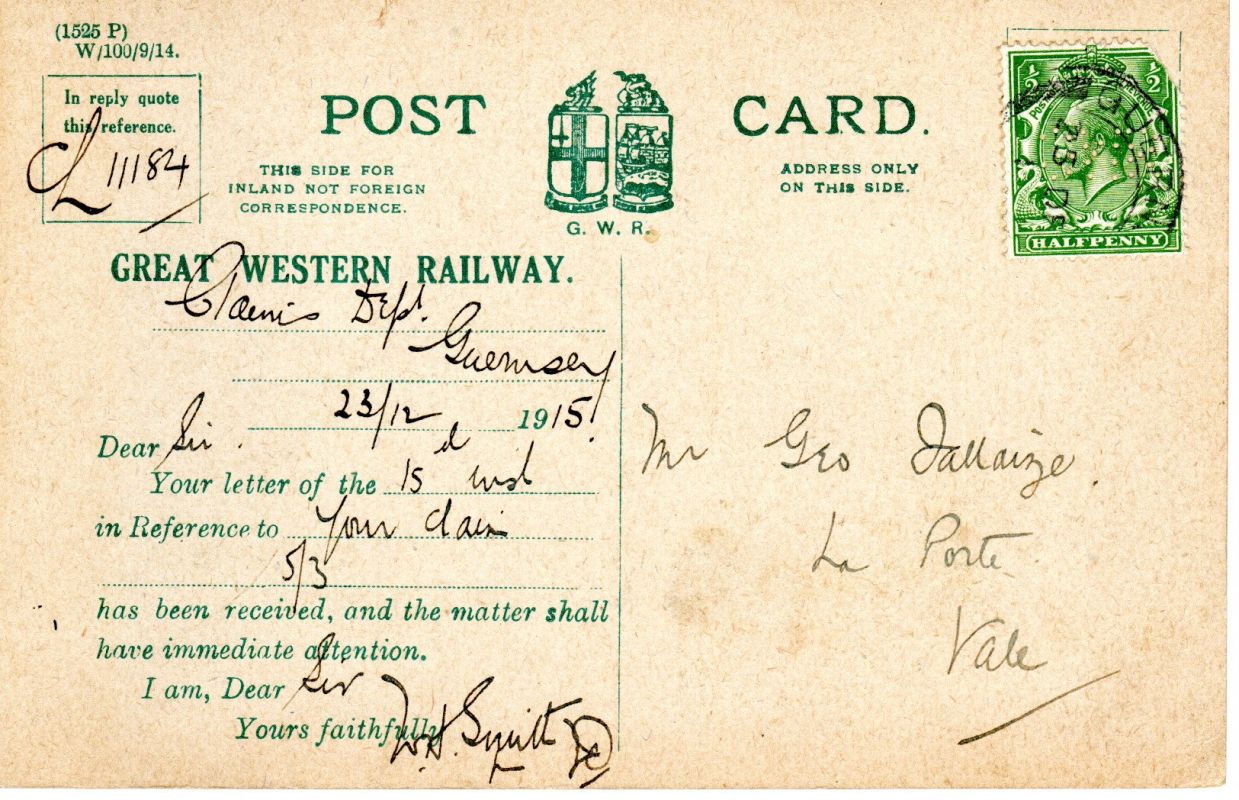 (1525 P)
W/100/9/14.
In reply quote
this reference.
L 11184
POST CARD.
THIS SIDE FOR
INLAND NOT FOREIGN
CORRESPONDENCE.
G. W. R.
ADDRESS ONLY
ON THIS SIDE.
HALFPENNY
GREAT WESTERN RAILWAY.
Claims Dept.
Guernsey
23/12 1915
Dear Sir.
Your letter of the 15 inst
in Reference to your claim
5/3
has been received, and the matter shall
have immediate attention.
I am, Dear Sir
Yours faithfully
W.H. Smith
Mr Geo Tallaize.
La Porte
Vale